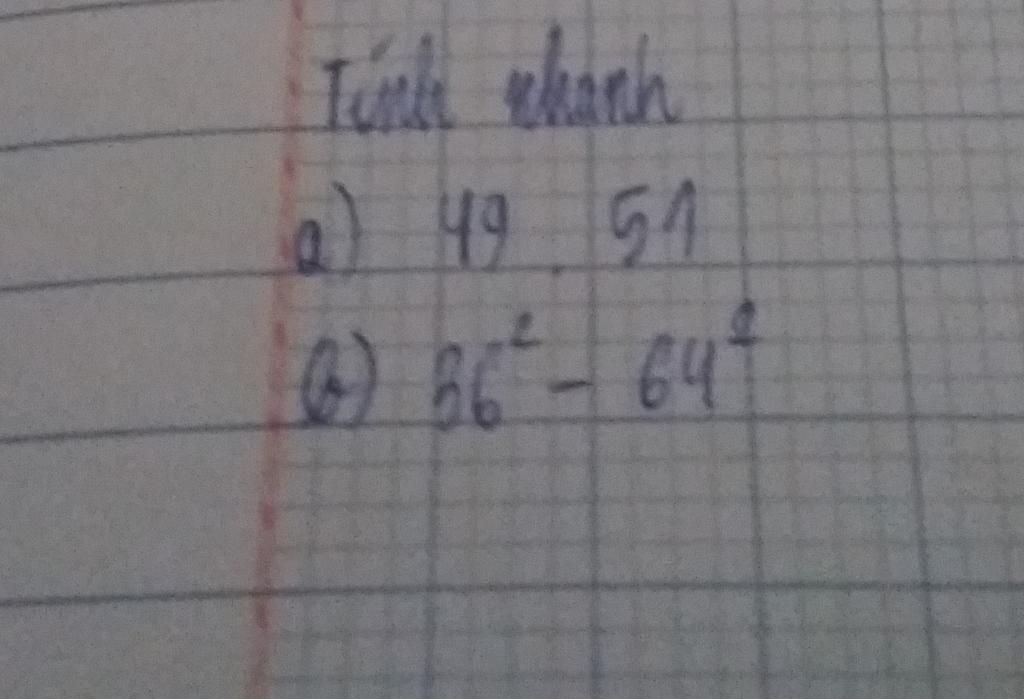 Tính nhanh
a) 49 . 51
b) 36² - 64²